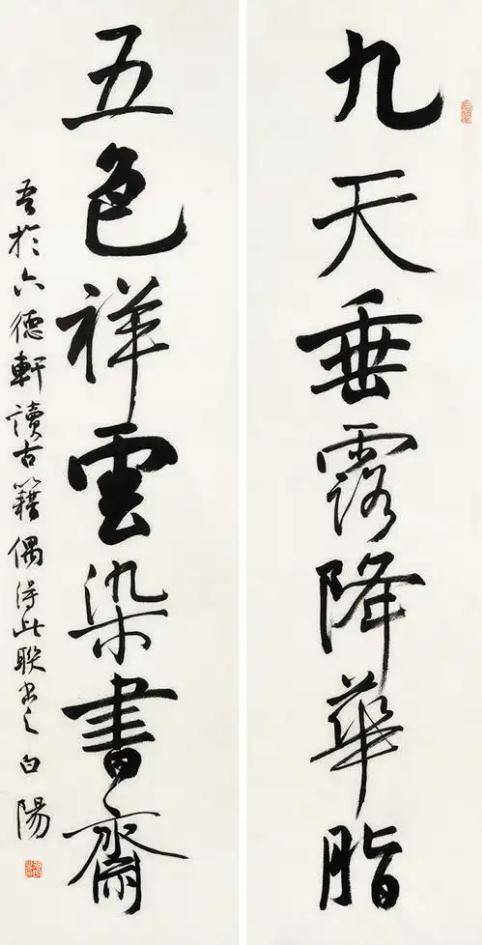 九天垂露降華脂
五色祥雲染書齋
吾於六德軒讀古籍偶得此联书之白陽